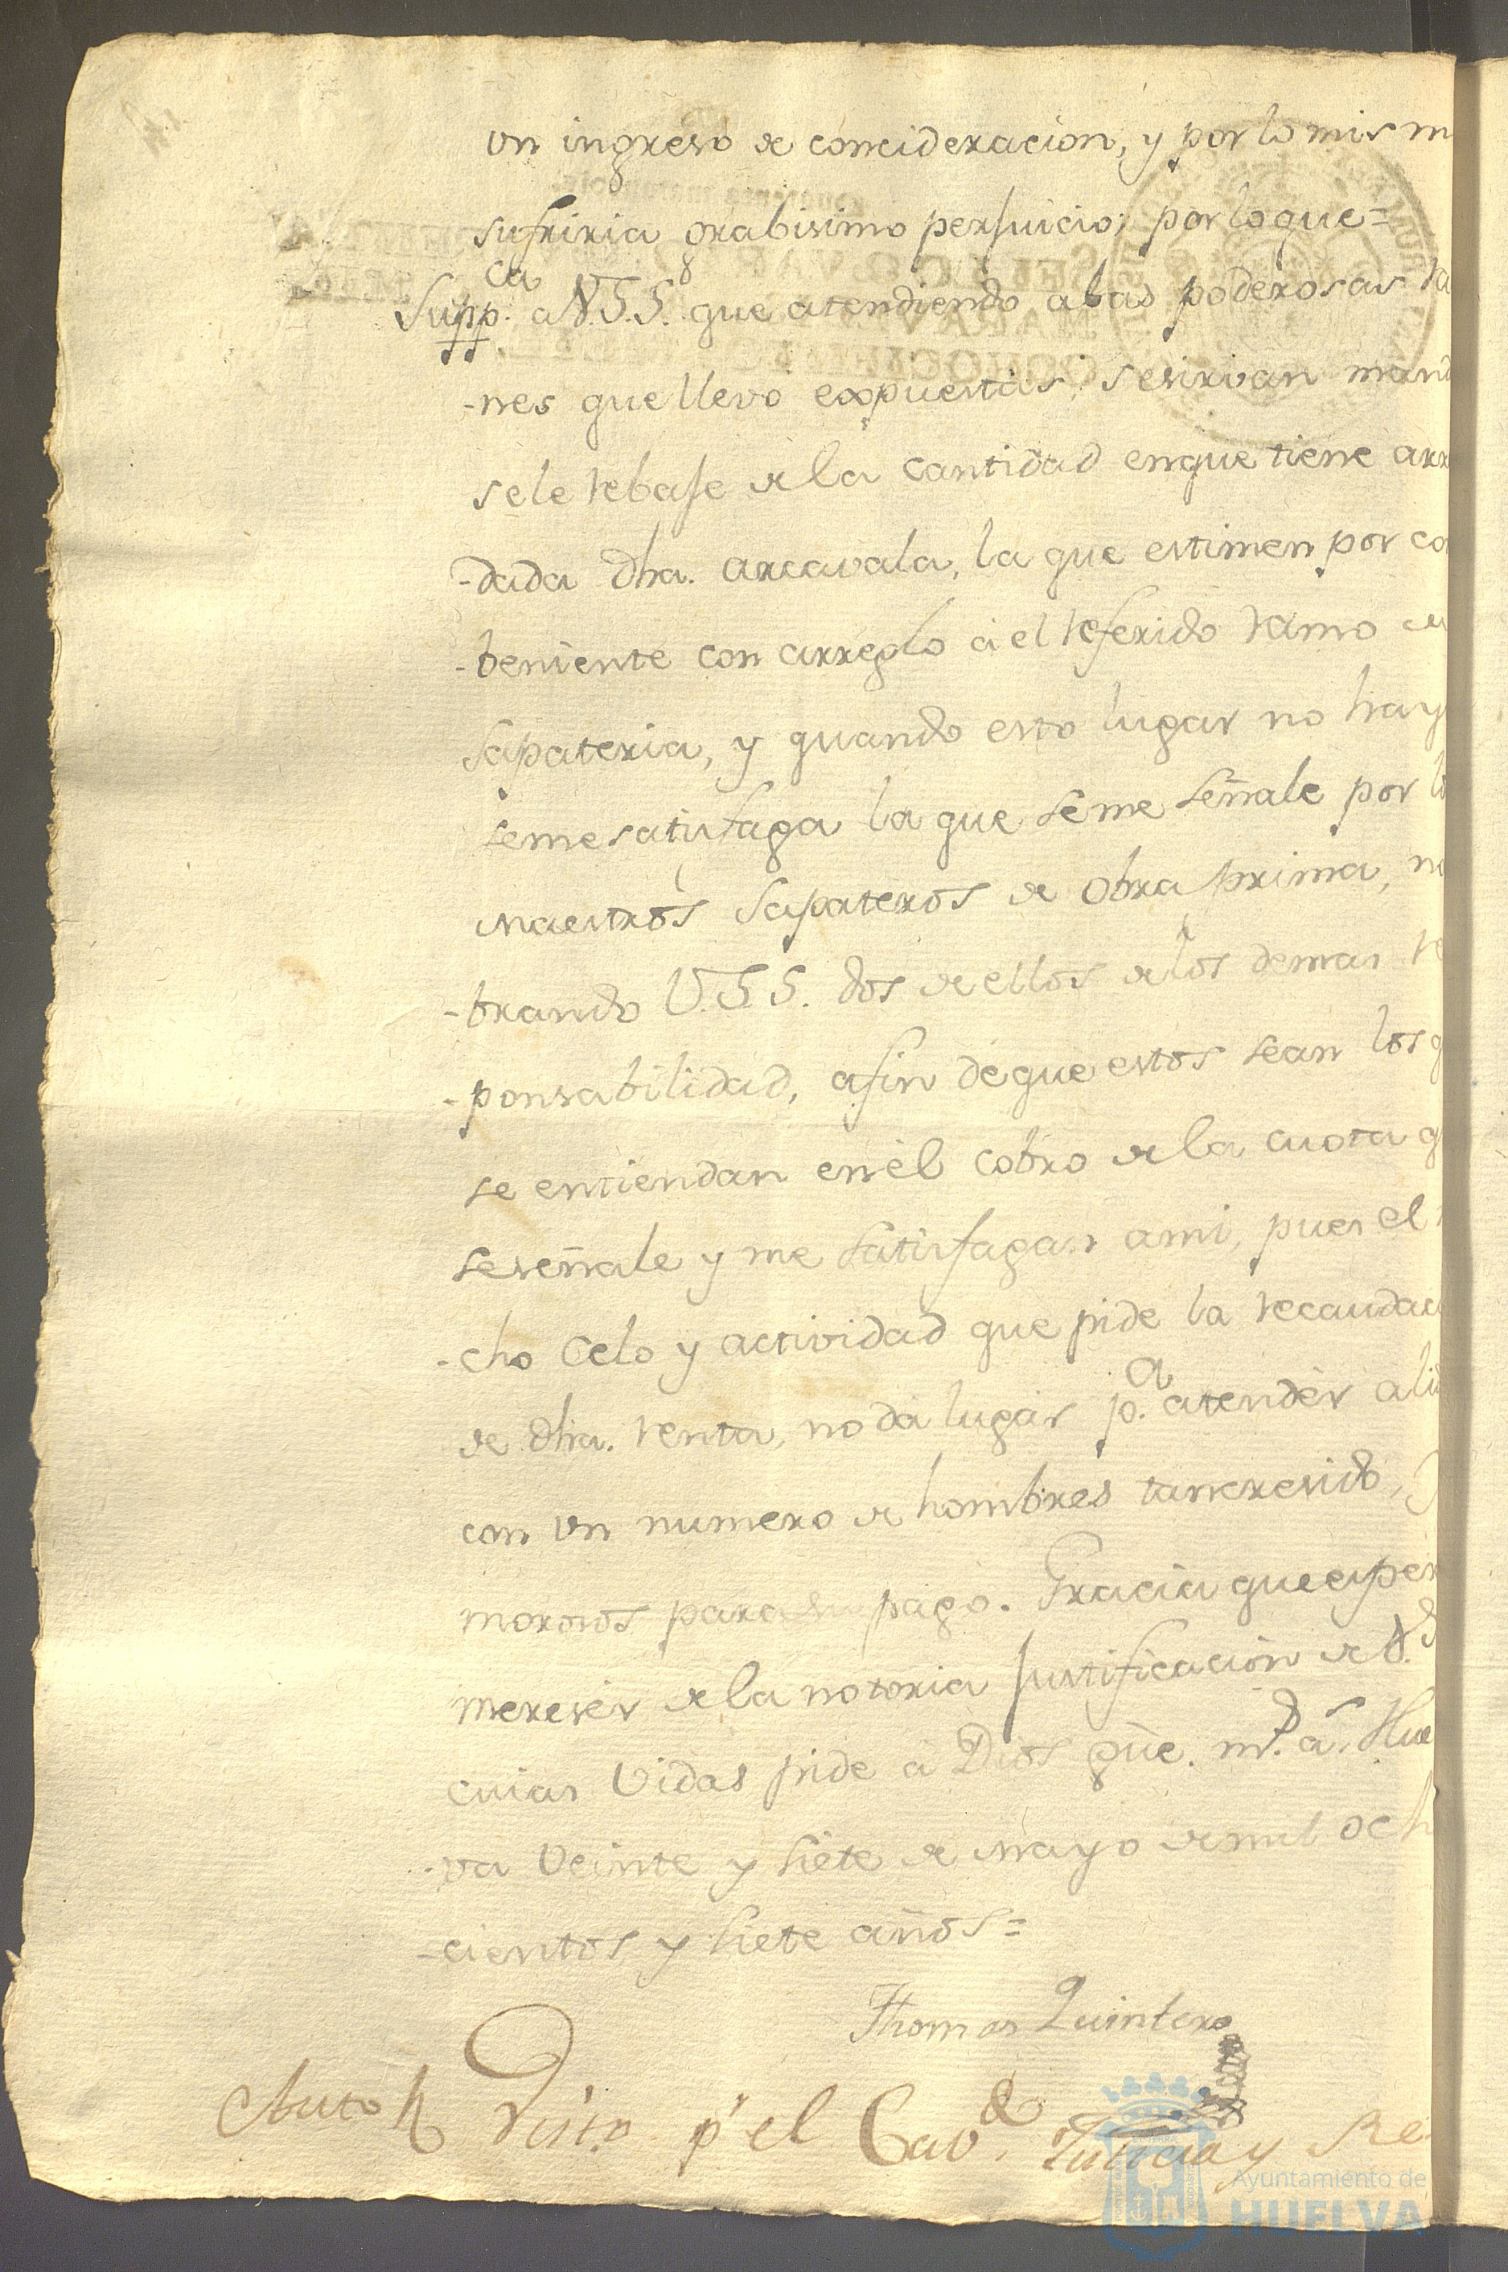 vn ingreso de concideracion, y por lo mism
sufriria grabisimo perjuicio; por loque=
Supp.ca a V.S.S.s que atendiendo alas poderosas ra
-nes que llevo expuestas, sesirvan mand
sele rebaje de la cantidad enque tiene arr
-dada dha. arcavala, la que estimen por co
-beniente con arreglo a el referido ramo de
sapateria, y quando esto lugar no hay
seme satisfaga la que seme señale por lo
maestros Sapateros de obra prima, no
-brando V.S.S. dos de ellos de los demas re
-ponsabilidad, afin deque estos sean los q
se entiendan enel cobro de la cuota q
seseñale y me satisfagan ami, pues el
-cho celo y actividad que pide la recaudac
de dha. renta, no da lugar p.a atender a li
con vn numero de hombres tancresido,
morosos para su pago. Gracia que esper
mereser de la notoria justificacion de V.S
cuias vidas pide a Dios gue. m.s a.s Hue
-va veinte y siete de mayo de mil och
-cientos y siete años=
Thomas Quintero
Auto Visto p.r el Cav.do Justicia y Re
Ayuntamiento de
HUELVA